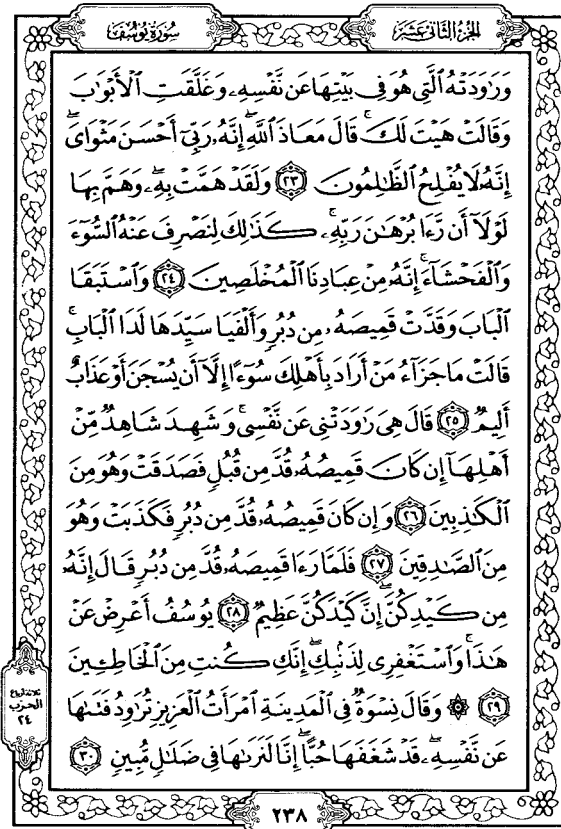 الجزء الثاني عشر
سورة يوسف
وَرَٰوَدَتْهُ ٱلَّتِى هُوَ فِى بَيْتِهَا عَن نَّفْسِهِۦ وَغَلَّقَتِ ٱلْأَبْوَٰبَ
وَقَالَتْ هَيْتَ لَكَ ۚ قَالَ مَعَاذَ ٱللَّهِ ۖ إِنَّهُۥ رَبِّىٓ أَحْسَنَ مَثْوَاىَ ۖ
إِنَّهُۥ لَا يُفْلِحُ ٱلظَّٰلِمُونَ ﴿٢٣﴾ وَلَقَدْ هَمَّتْ بِهِۦ ۖ وَهَمَّ بِهَا
لَوْلَآ أَن رَّءَا بُرْهَٰنَ رَبِّهِۦ ۚ كَذَٰلِكَ لِنَصْرِفَ عَنْهُ ٱلسُّوٓءَ
وَٱلْفَحْشَآءَ ۚ إِنَّهُۥ مِنْ عِبَادِنَا ٱلْمُخْلَصِينَ ﴿٢٤﴾ وَٱسْتَبَقَا
ٱلْبَابَ وَقَدَّتْ قَمِيصَهُۥ مِن دُبُرٍ وَأَلْفَيَا سَيِّدَهَا لَدَا ٱلْبَابِ ۚ
قَالَتْ مَا جَزَآءُ مَنْ أَرَادَ بِأَهْلِكَ سُوٓءًا إِلَّآ أَن يُسْجَنَ أَوْ عَذَابٌ
أَلِيمٌ ﴿٢٥﴾ قَالَ هِىَ رَٰوَدَتْنِى عَن نَّفْسِى ۚ وَشَهِدَ شَاهِدٌ مِّنْ
أَهْلِهَآ إِن كَانَ قَمِيصُهُۥ قُدَّ مِن قُبُلٍ فَصَدَقَتْ وَهُوَ مِنَ
ٱلْكَٰذِبِينَ ﴿٢٦﴾ وَإِن كَانَ قَمِيصُهُۥ قُدَّ مِن دُبُرٍ فَكَذَبَتْ وَهُوَ
مِنَ ٱلصَّٰدِقِينَ ﴿٢٧﴾ فَلَمَّا رَءَا قَمِيصَهُۥ قُدَّ مِن دُبُرٍ قَالَ إِنَّهُۥ
مِن كَيْدِكُنَّ ۖ إِنَّ كَيْدَكُنَّ عَظِيمٌ ﴿٢٨﴾ يُوسُفُ أَعْرِضْ عَنْ
هَٰذَا ۚ وَٱسْتَغْفِرِى لِذَنۢبِكِ ۖ إِنَّكِ كُنتِ مِنَ ٱلْخَاطِـِٔينَ
﴿٢٩﴾ ۞ وَقَالَ نِسْوَةٌ فِى ٱلْمَدِينَةِ ٱمْرَأَتُ ٱلْعَزِيزِ تُرَٰوِدُ فَتَىٰهَا
عَن نَّفْسِهِۦ ۖ قَدْ شَغَفَهَا حُبًّا ۖ إِنَّا لَنَرَىٰهَا فِى ضَلَٰلٍ مُّبِينٍ ﴿٣٠﴾
ثلاثة أرباع
الحزب
٢٤
٢٣٨